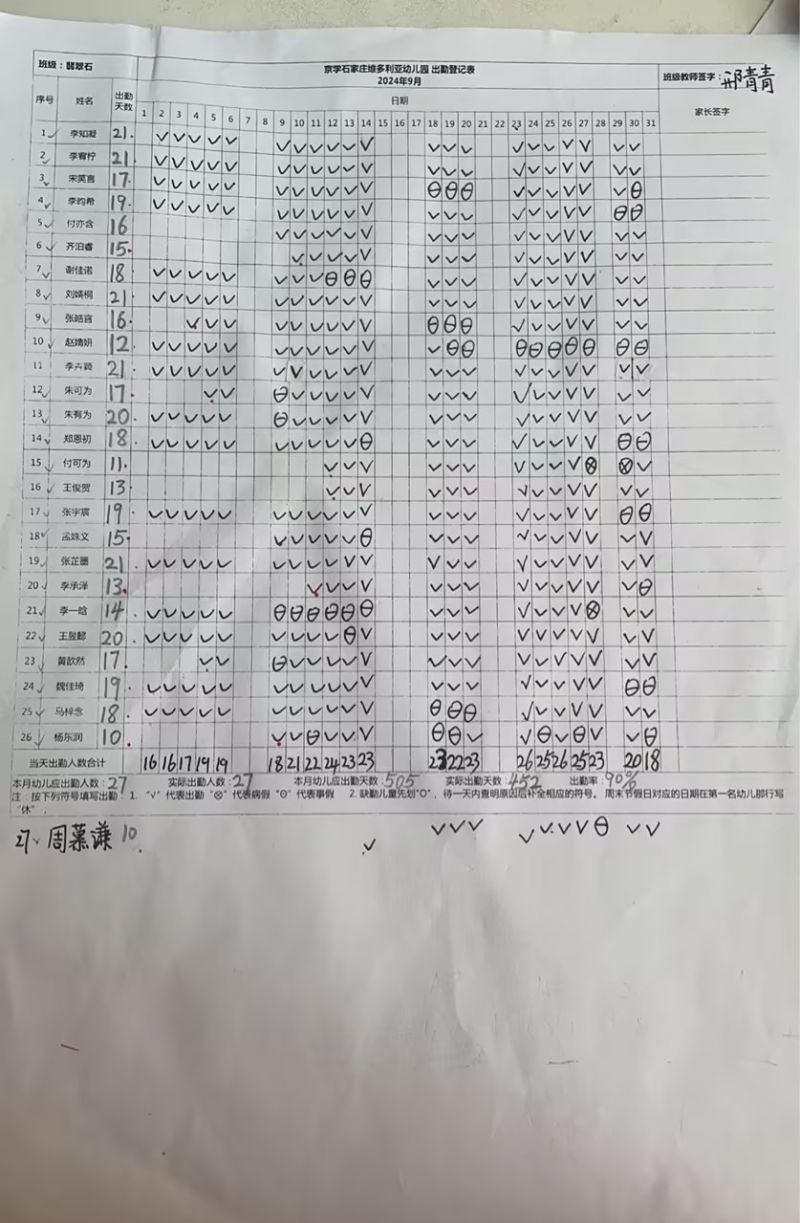 京学石家庄维多利亚幼儿园 出勤登记表
班级：翡翠石 2024年9月 班级教师签字：邢青青
序号 姓名 出勤天数 日期 家长签字
1 2 3 4 5 6 7 8 9 10 11 12 13 14 15 16 17 18 19 20 21 22 23 24 25 26 27 28 29 30 31
1 ✓ 李知凝 21. ✓ ✓ ✓ ✓ ✓ ✓ ✓ ✓ ✓ ✓ ✓ ✓ ✓ ✓ ✓ ✓ ✓ ✓ ✓ ✓ ✓
2 ✓ 李宥柠 21 ✓ ✓ ✓ ✓ ✓ ✓ ✓ ✓ ✓ ✓ ✓ ✓ ✓ ✓ ✓ ✓ ✓ ✓ ✓ ✓ ✓
3 ✓ 宋英言 17. ✓ ✓ ✓ ✓ ✓ ✓ ✓ ✓ ✓ ✓ ✓ ⊖ ⊖ ⊖ ✓ ✓ ✓ ✓ ✓ ✓ ⊖
4 ✓ 李昀希 19. ✓ ✓ ✓ ✓ ✓ ✓ ✓ ✓ ✓ ✓ ✓ ✓ ✓ ✓ ✓ ✓ ✓ ✓ ✓ ⊖ ⊖
5 ✓ 付亦含 16 ✓ ✓ ✓ ✓ ✓ ✓ ✓ ✓ ✓ ✓ ✓ ✓ ✓ ✓ ✓ ✓
6 ✓ 齐泊睿 15. ✓ ✓ ✓ ✓ ✓ ✓ ✓ ✓ ✓ ✓ ✓ ✓ ✓ ✓ ✓
7 ✓ 谢佳诺 18 ✓ ✓ ✓ ✓ ✓ ✓ ✓ ✓ ⊖ ⊖ ⊖ ✓ ✓ ✓ ✓ ✓ ✓ ✓ ✓ ✓ ✓
8 ✓ 刘婧桐 21 ✓ ✓ ✓ ✓ ✓ ✓ ✓ ✓ ✓ ✓ ✓ ✓ ✓ ✓ ✓ ✓ ✓ ✓ ✓ ✓ ✓
9 ✓ 张皓言 16. ✓ ✓ ✓ ✓ ✓ ✓ ✓ ✓ ✓ ⊖ ⊖ ⊖ ✓ ✓ ✓ ✓ ✓ ✓ ✓
10 ✓ 赵婧妍 12 ✓ ✓ ✓ ✓ ✓ ✓ ✓ ✓ ✓ ✓ ✓ ✓ ⊖ ⊖ ⊖ ⊖ ⊖ ⊖ ⊖ ⊖ ⊖
11 李卉颖 21. ✓ ✓ ✓ ✓ ✓ ✓ ✓ ✓ ✓ ✓ ✓ ✓ ✓ ✓ ✓ ✓ ✓ ✓ ✓ ✓ ✓
12 ✓ 朱可为 17. ✓ ✓ ⊖ ✓ ✓ ✓ ✓ ✓ ✓ ✓ ✓ ✓ ✓ ✓ ✓ ✓ ✓ ✓
13 ✓ 朱有为 20. ✓ ✓ ✓ ✓ ✓ ⊖ ✓ ✓ ✓ ✓ ✓ ✓ ✓ ✓ ✓ ✓ ✓ ✓ ✓ ✓ ✓
14 ✓ 郑恩初 18 ✓ ✓ ✓ ✓ ✓ ✓ ✓ ✓ ✓ ✓ ⊖ ✓ ✓ ✓ ✓ ✓ ✓ ✓ ✓ ⊖ ⊖
15 ✓ 付可为 11. ✓ ✓ ✓ ✓ ✓ ✓ ✓ ✓ ✓ ✓ ⊗ ⊗ ✓
16 ✓ 王俊贺 13 ✓ ✓ ✓ ✓ ✓ ✓ ✓ ✓ ✓ ✓ ✓ ✓ ✓
17 ✓ 张宇宸 19 ✓ ✓ ✓ ✓ ✓ ✓ ✓ ✓ ✓ ✓ ✓ ✓ ✓ ✓ ✓ ✓ ✓ ✓ ✓ ⊖ ⊖
18 ✓ 孟姝文 15. ✓ ✓ ✓ ✓ ✓ ⊖ ✓ ✓ ✓ ✓ ✓ ✓ ✓ ✓ ✓ ✓
19 ✓ 张芷墨 21 ✓ ✓ ✓ ✓ ✓ ✓ ✓ ✓ ✓ ✓ ✓ ✓ ✓ ✓ ✓ ✓ ✓ ✓ ✓ ✓ ✓
20 ✓ 李承泽 13. ✓ ✓ ✓ ✓ ✓ ✓ ✓ ✓ ✓ ✓ ✓ ✓ ✓ ⊖
21 ✓ 李一晗 14. ✓ ✓ ✓ ✓ ✓ ⊖ ⊖ ⊖ ⊖ ⊖ ⊖ ✓ ✓ ✓ ✓ ✓ ✓ ✓ ⊗ ✓ ✓
22 ✓ 王昱懿 20 ✓ ✓ ✓ ✓ ✓ ✓ ✓ ✓ ✓ ⊖ ✓ ✓ ✓ ✓ ✓ ✓ ✓ ✓ ✓ ✓ ✓
23 ✓ 黄歆然 17. ✓ ✓ ⊖ ✓ ✓ ✓ ✓ ✓ ✓ ✓ ✓ ✓ ✓ ✓ ✓ ✓ ✓ ✓
24 ✓ 魏佳琦 19. ✓ ✓ ✓ ✓ ✓ ✓ ✓ ✓ ✓ ✓ ✓ ✓ ✓ ✓ ✓ ✓ ✓ ✓ ✓ ⊖ ⊖
25 ✓ 马梓念 18. ✓ ✓ ✓ ✓ ✓ ✓ ✓ ✓ ✓ ✓ ✓ ⊖ ⊖ ⊖ ✓ ✓ ✓ ✓ ✓ ✓ ✓
26 ✓ 杨东润 10. ✓ ✓ ⊖ ✓ ✓ ✓ ⊖ ⊖ ✓ ✓ ⊖ ✓ ⊖ ✓ ✓ ⊖
当天出勤人数合计 16 16 17 19 19 18 21 22 24 23 23 23 22 23 26 25 26 25 23 20 18
本月幼儿应出勤人数：27 实际出勤人数：27 本月幼儿应出勤天数：505 实际出勤天数：452 出勤率：90%
注：按下列符号填写出勤 1. "√" 代表出勤 "⊗" 代表病假 "⊙" 代表事假 2. 缺勤儿童先划"O"，待一天内查明原因后补全相应的符号。 周末节假日对应的日期在第一名幼儿那行写
"休"，
27 ✓ 周慕谦 10. ✓ ✓ ✓ ✓ ✓ ✓ ✓ ✓ ⊖ ✓ ✓